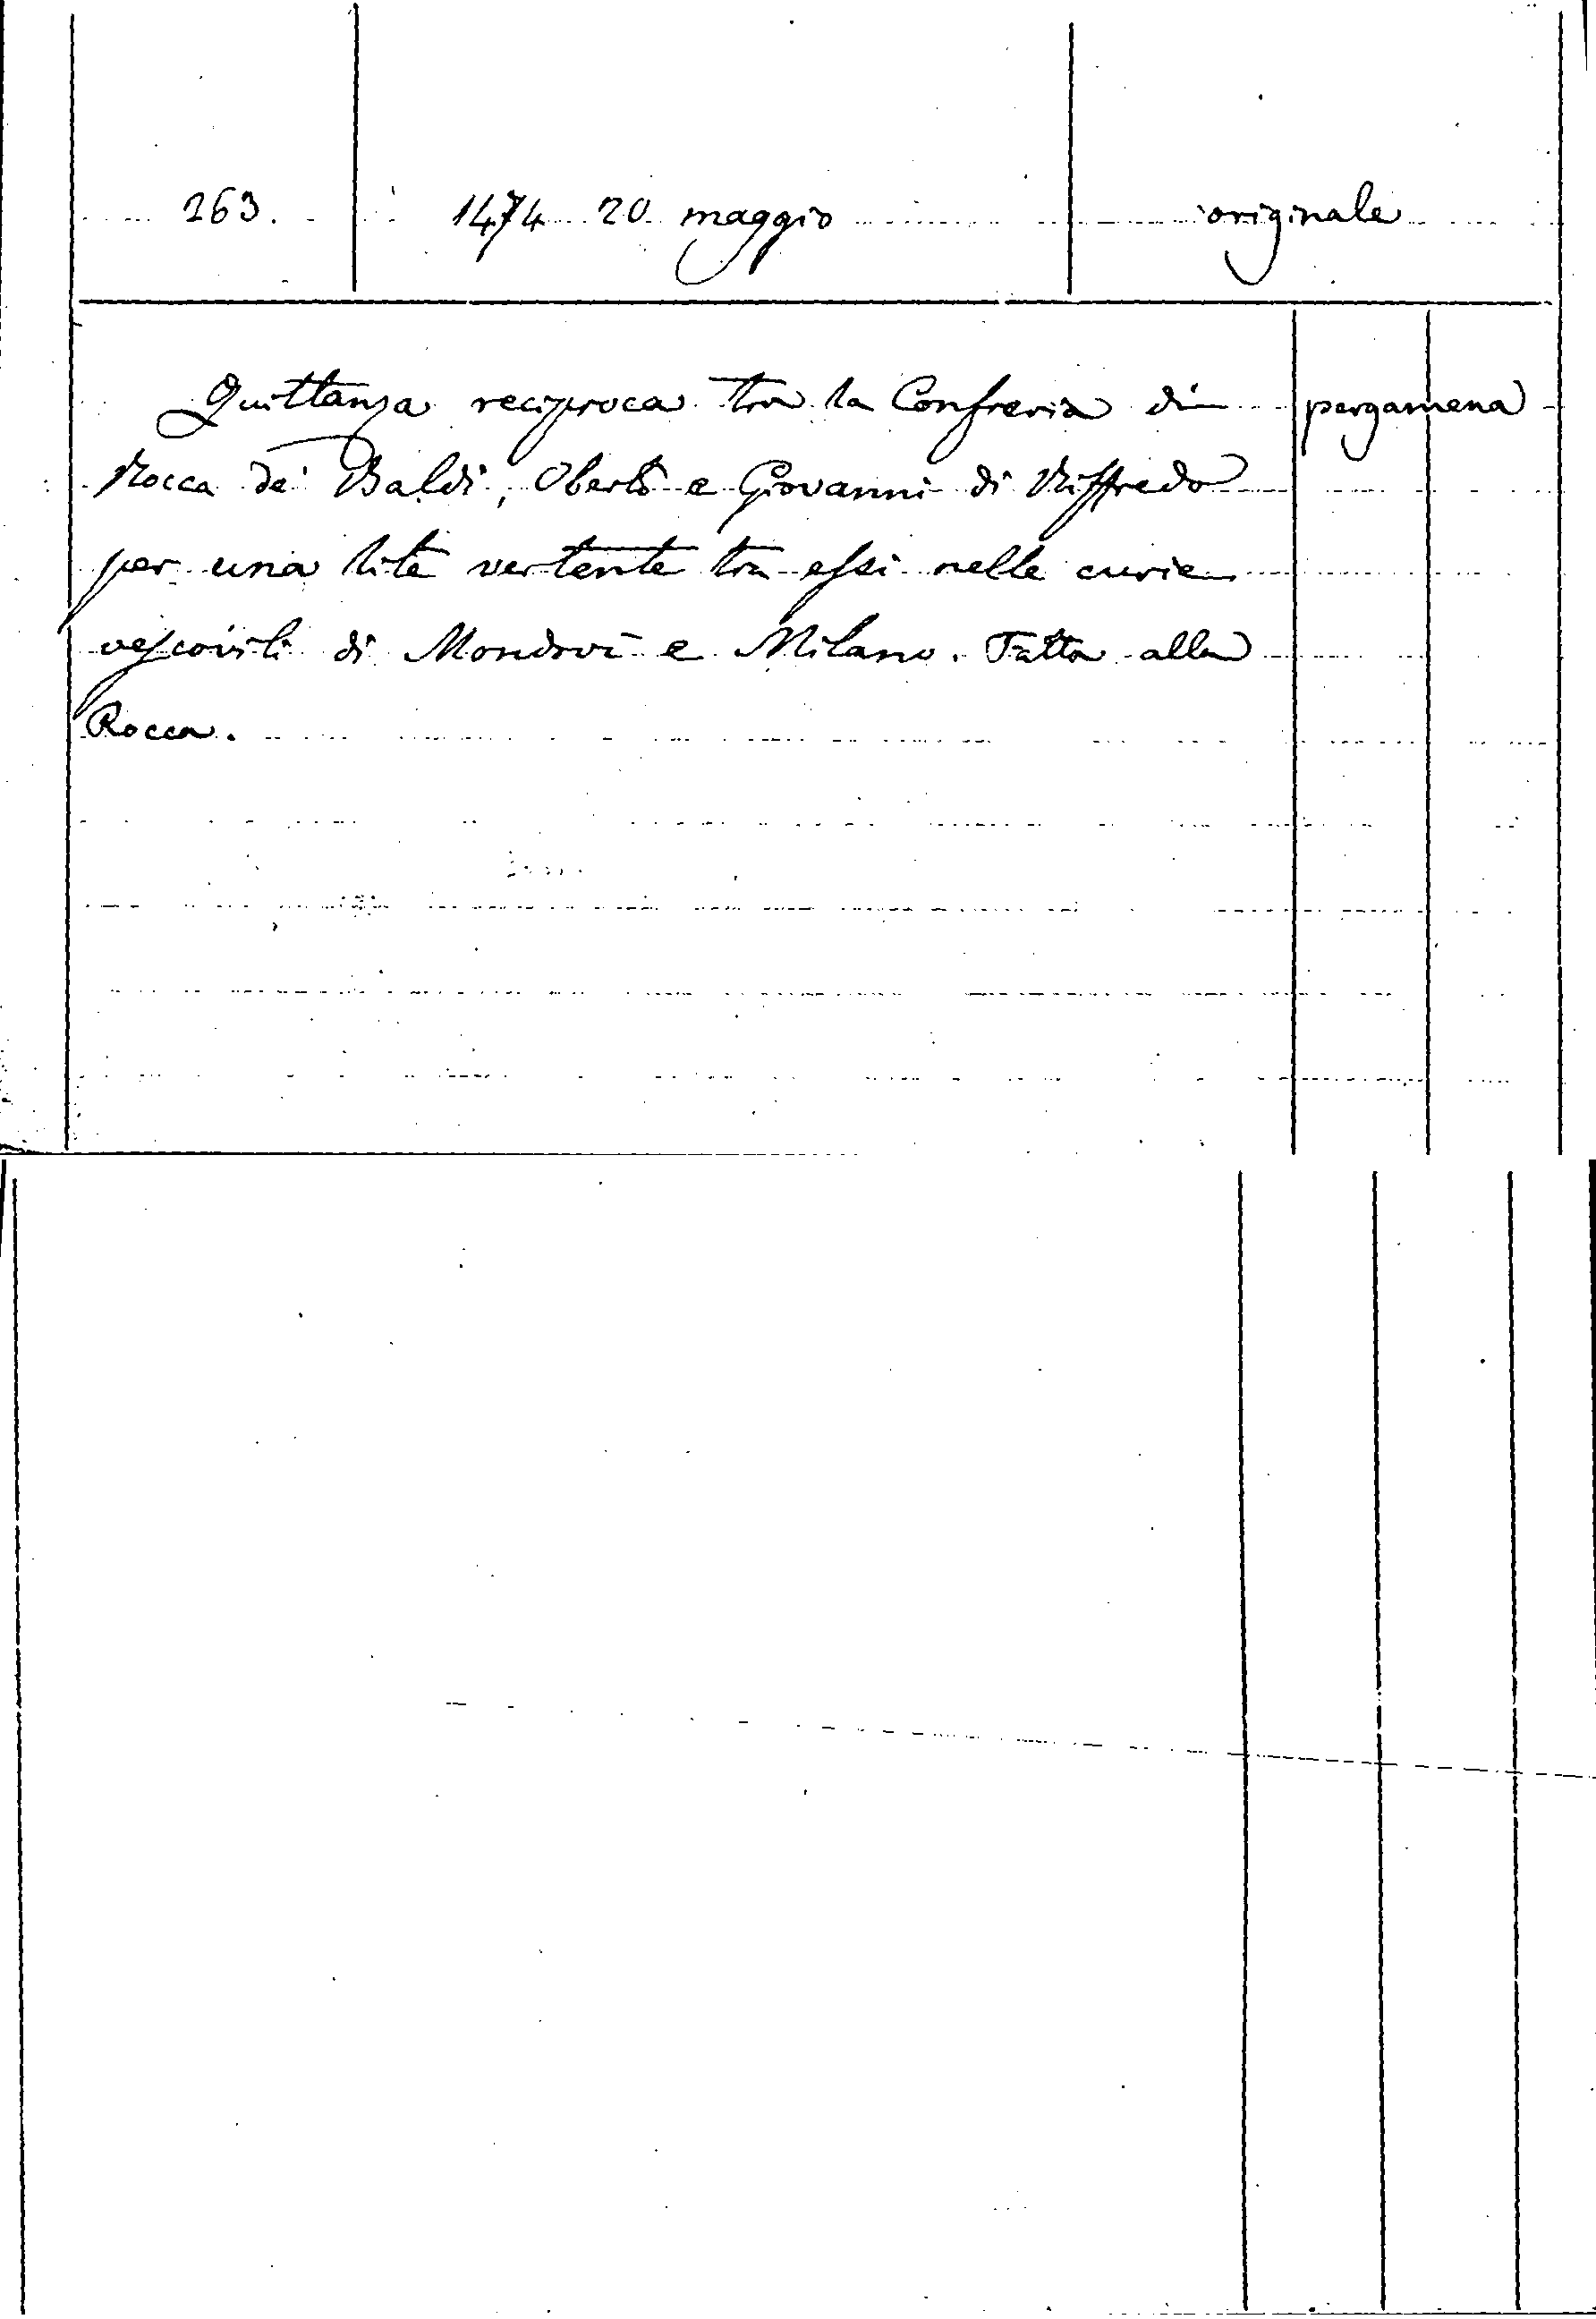 263. 1474 20 maggio originale
Quittanza reciproca tra la Confreria di pergamena
Rocca de' Baldi, Oberto e Giovanni di Riffredo
per una lite vertente tra essi nelle curie
vescovili di Mondovì e Milano. Fatta alla
Rocca.